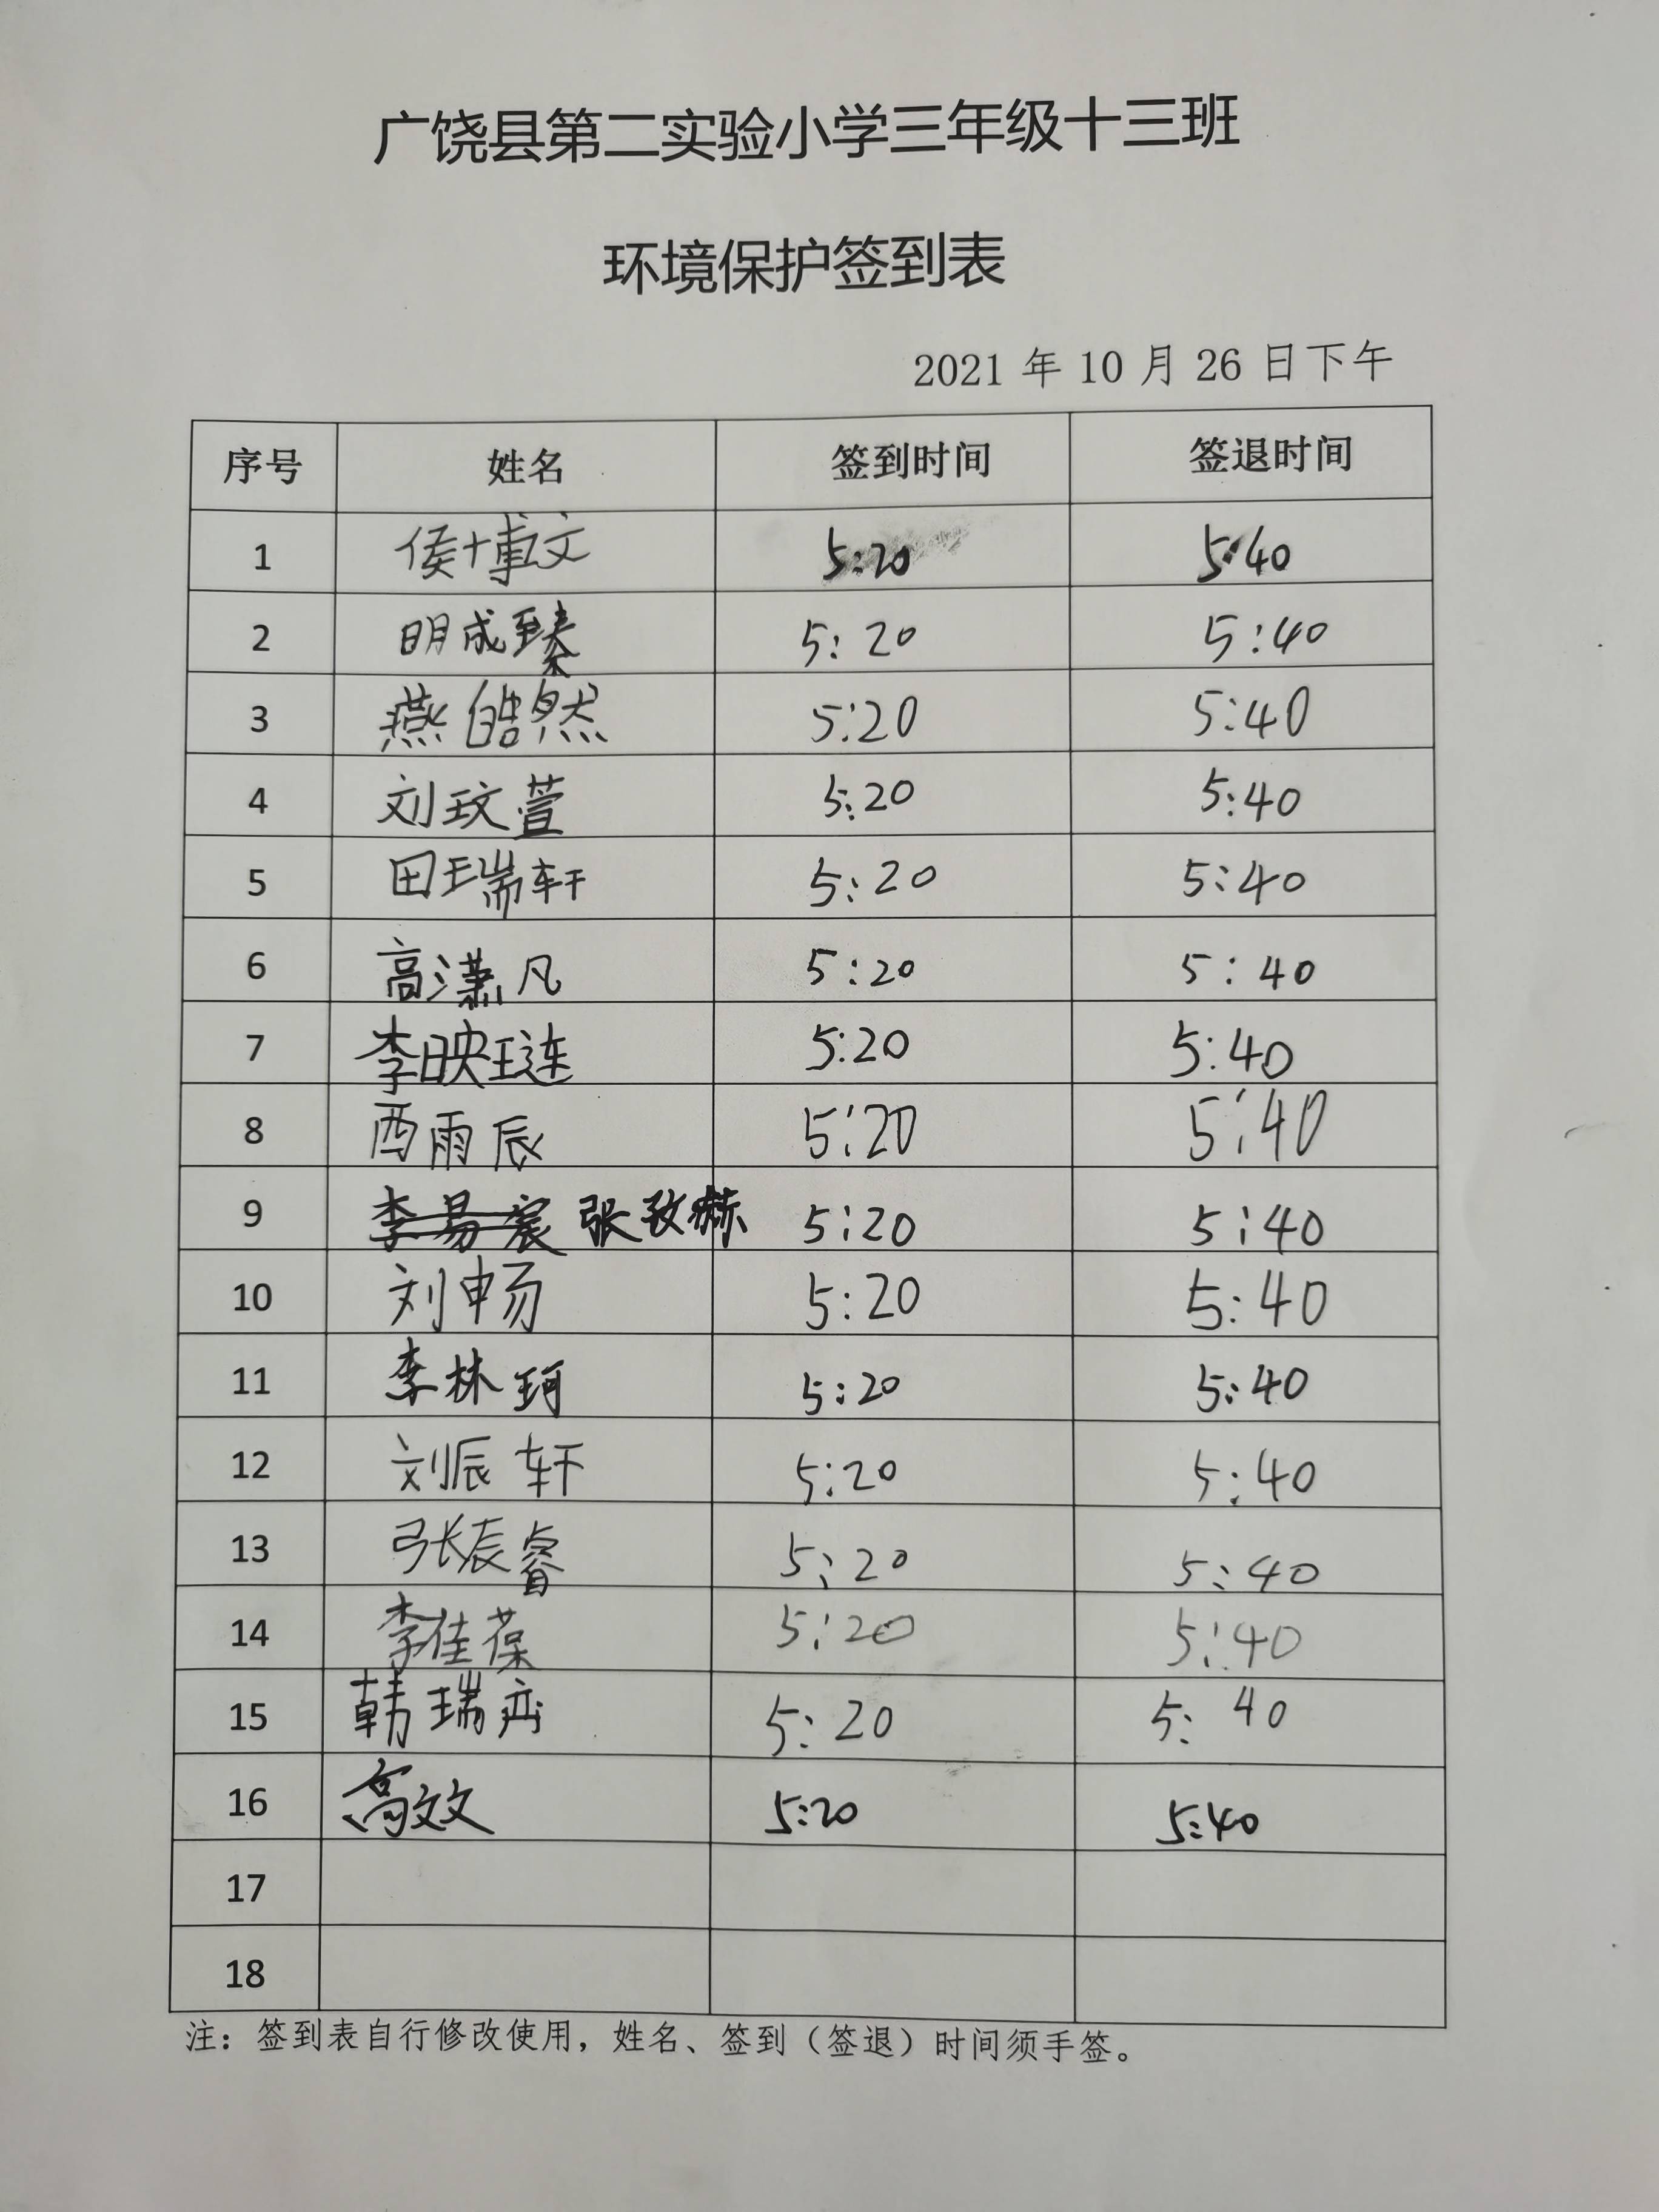 广饶县第二实验小学三年级十三班
环境保护签到表
2021 年 10 月 26 日下午
序号 姓名 签到时间 签退时间
1 侯博文 5:20 5:40
2 明成臻 5:20 5:40
3 燕皓然 5:20 5:40
4 刘玟萱 5:20 5:40
5 田瑞轩 5:20 5:40
6 高潇凡 5:20 5:40
7 李映琏 5:20 5:40
8 西雨辰 5:20 5:40
9 李易宸 张孜赫 5:20 5:40
10 刘申畅 5:20 5:40
11 李林珂 5:20 5:40
12 刘辰轩 5:20 5:40
13 张辰睿 5:20 5:40
14 李佳葆 5:20 5:40
15 韩瑞齐 5:20 5:40
16 高效 5:20 5:40
17
18
注：签到表自行修改使用，姓名、签到（签退）时间须手签。